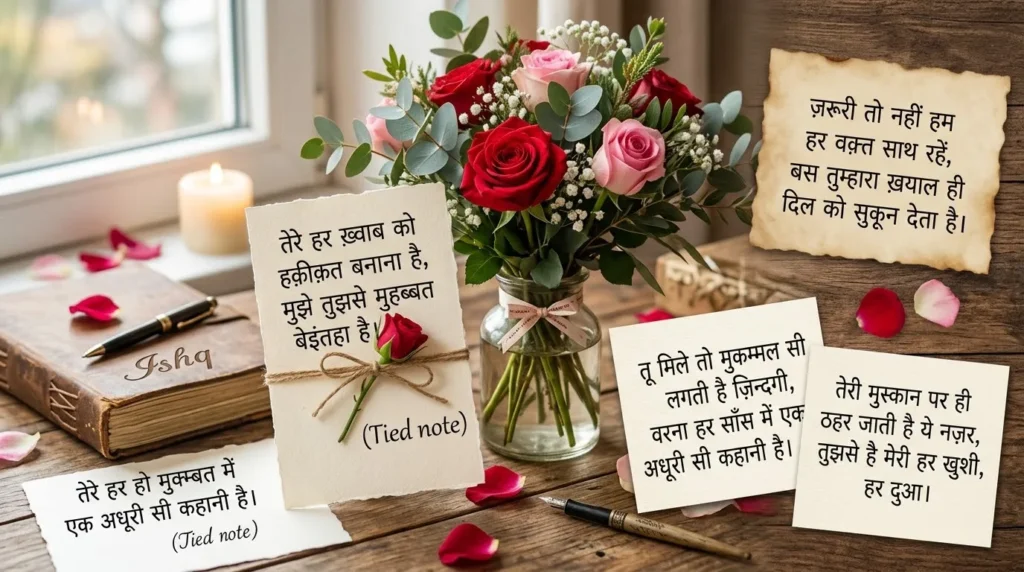 ज़रूरी तो नहीं हम
हर वक़्त साथ रहें,
बस तुम्हारा ख़याल ही
दिल को सुकून देता है।
तेरे हर ख़्वाब को
हक़ीक़त बनाना है,
मुझे तुझसे मुहब्बत
बेइंतहा है
(Tied note)
Ishq
तू मिले तो मुकम्मल सी
लगती है ज़िन्दगी,
वरना हर साँस में एक
अधूरी सी कहानी है।
तेरी मुस्कान पर ही
ठहर जाती है ये नज़र,
तुझसे है मेरी हर खुशी,
हर दुआ।
तेरे हर हो मुक्म्बत में
एक अधूरी सी कहानी है।
(Tied note)